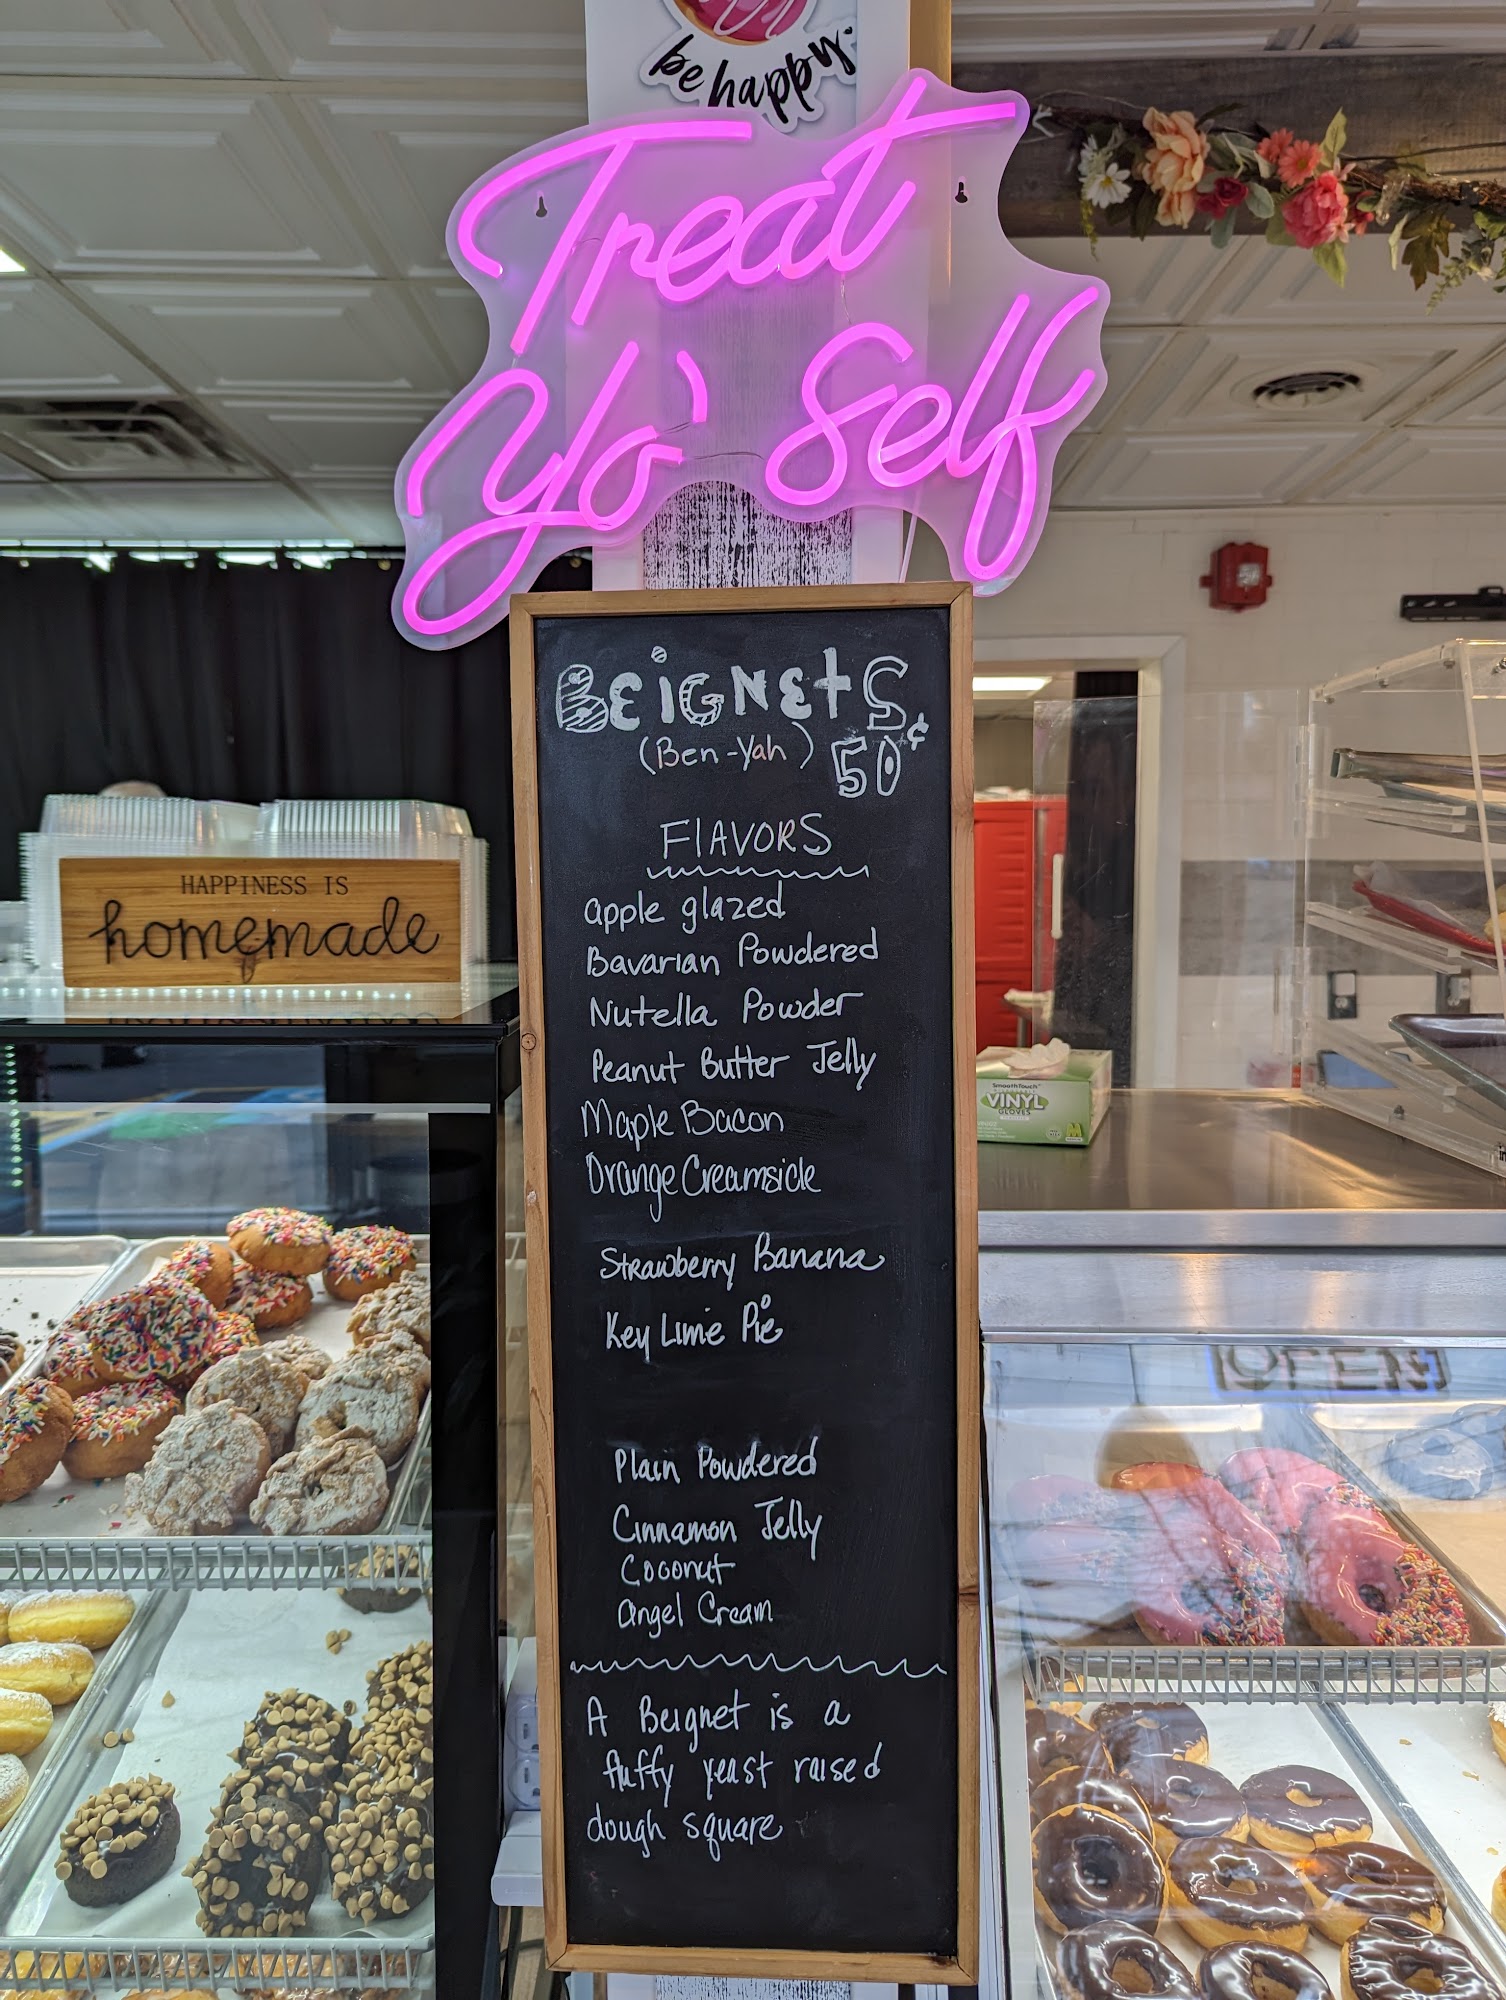 be happy.
Treat
Yo' Self
BEiGNEtS
(Ben-Yah) 50¢
FlAVORS
apple glazed
Bavarian Powdered
Nutella Powder
Peanut Butter Jelly
Maple Bacon
Orange Creamsicle
Strawberry Banana
Key Lime Pie
Plain Powdered
Cinnamon Jelly
Coconut
angel Cream
A Beignet is a
fluffy yeast raised
dough square
HAPPINESS IS
homemade
SmoothTouch
VINYL
GLOVES
M
OPEN